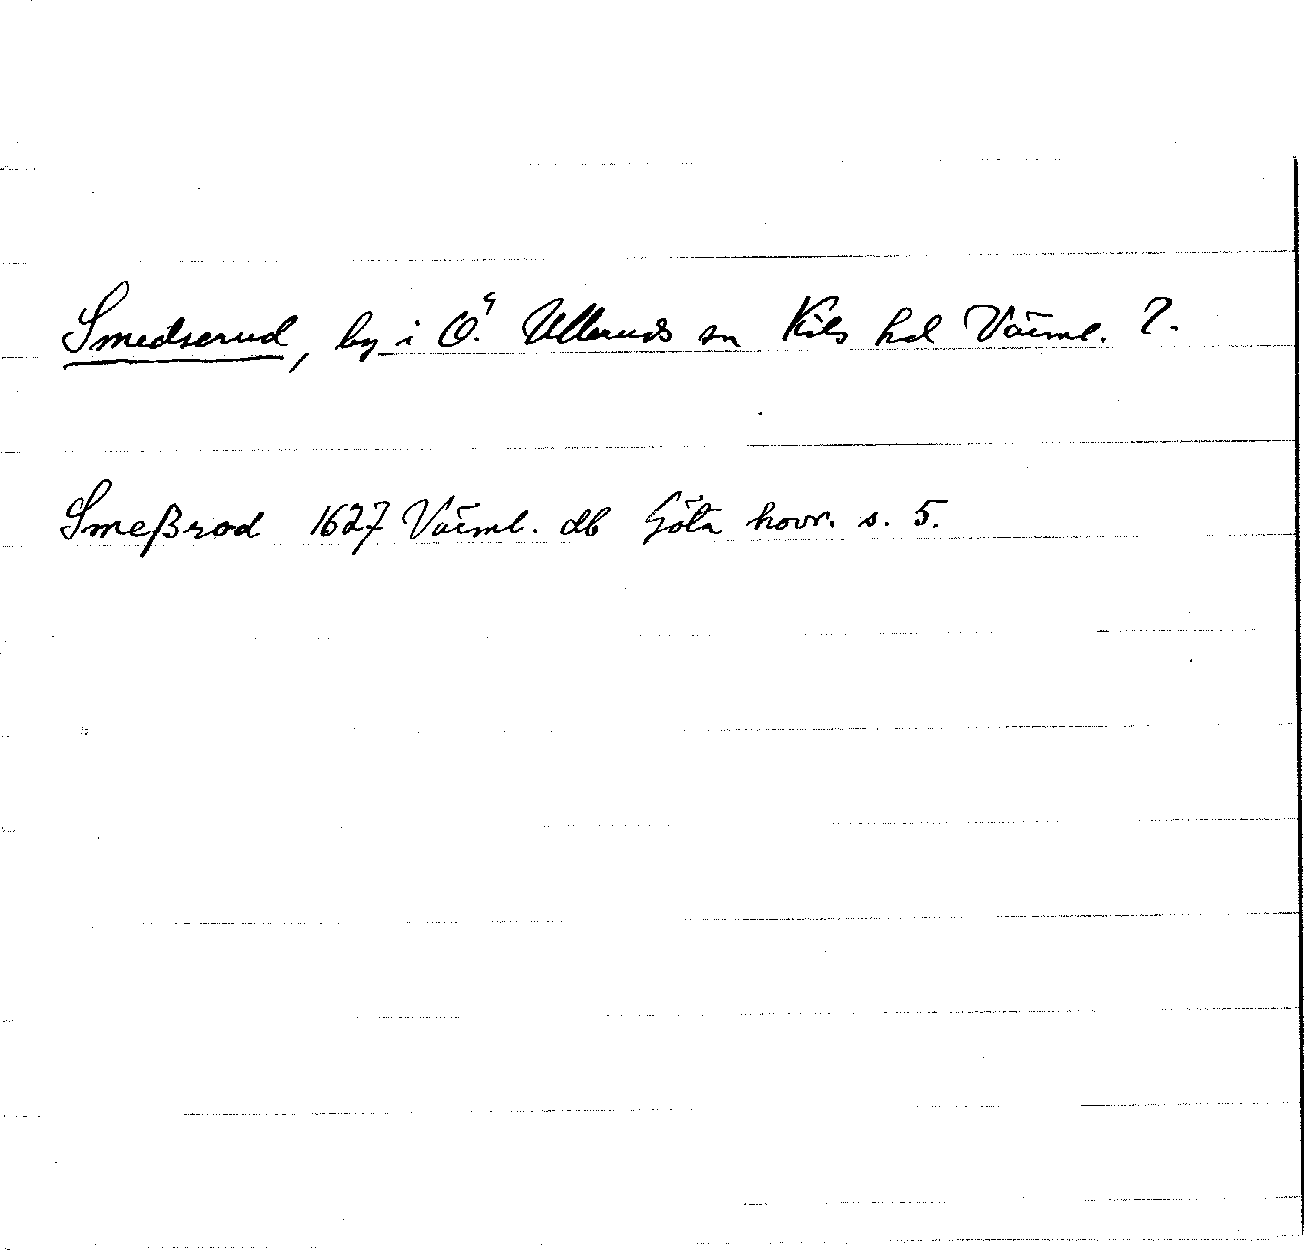 Smedserud, by i Ö. Ulleruds sn Kils hd Värml. ?.
Smeßrod 1627 Värml. db Göta hovr. s. 5.